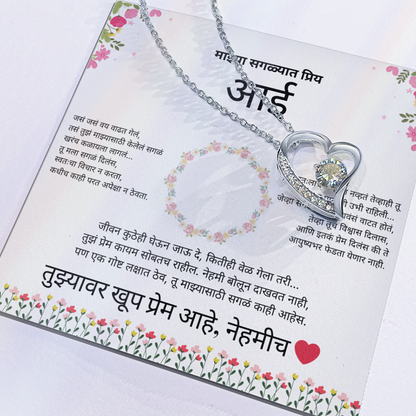 माझ्या सगळ्यात प्रिय
आई
जसं जसं वय वाढत गेलं,
तसं तुझं माझ्यासाठी केलेलं सगळं
खरंच कळायला लागलं...
तू मला सगळं दिलंस,
स्वतःचा विचार न करता,
कधीच काही परत अपेक्षा न ठेवता.
नव्हतं तेव्हाही तू
उभी राहिली...
जेव्हा वाटत होतं,
तेव्हा तूच विश्वास दिलास,
आणि इतकं प्रेम दिलंस की ते
आयुष्यभर फेडता येणार नाही.
जीवन कुठेही घेऊन जाऊ दे, कितीही वेळ गेला तरी...
तुझं प्रेम कायम सोबतच राहील. नेहमी बोलून दाखवत नाही,
पण एक गोष्ट लक्षात ठेव, तू माझ्यासाठी सगळं काही आहेस.
तुझ्यावर खूप प्रेम आहे, नेहमीच